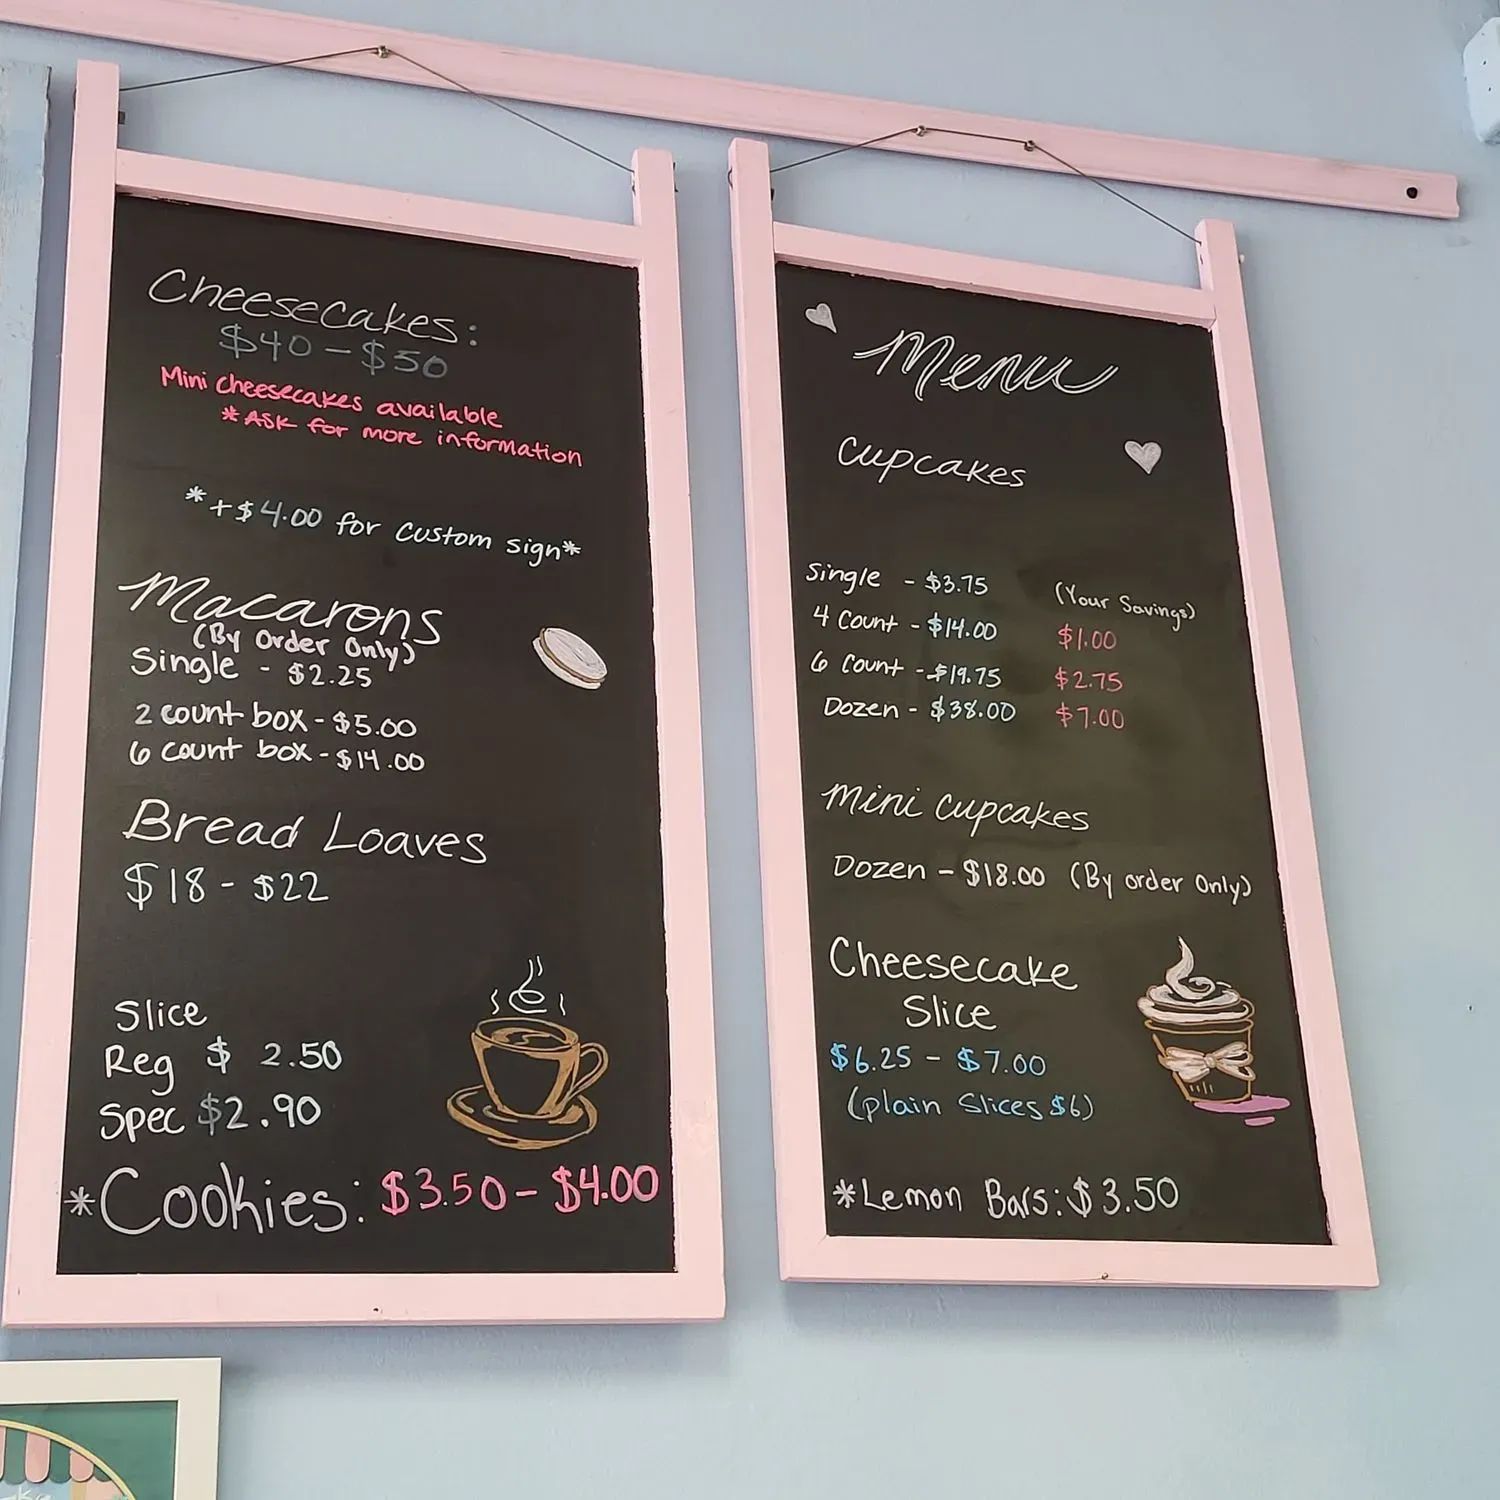 Cheesecakes:
$40 - $50
Mini cheesecakes available
*ASK for more information
*+$4.00 for custom sign*
Macarons
(By Order Only)
Single - $2.25
2 count box - $5.00
6 count box - $14.00
Bread Loaves
$18 - $22
Slice
Reg $ 2.50
Spec $2.90
*Cookies: $3.50 - $4.00
Menu
Cupcakes
Single - $3.75 (Your Savings)
4 Count - $14.00 $1.00
6 Count - $19.75 $2.75
Dozen - $38.00 $7.00
Mini Cupcakes
Dozen - $18.00 (By order Only)
Cheesecake
Slice
$6.25 - $7.00
(plain Slices $6)
*Lemon Bars: $3.50